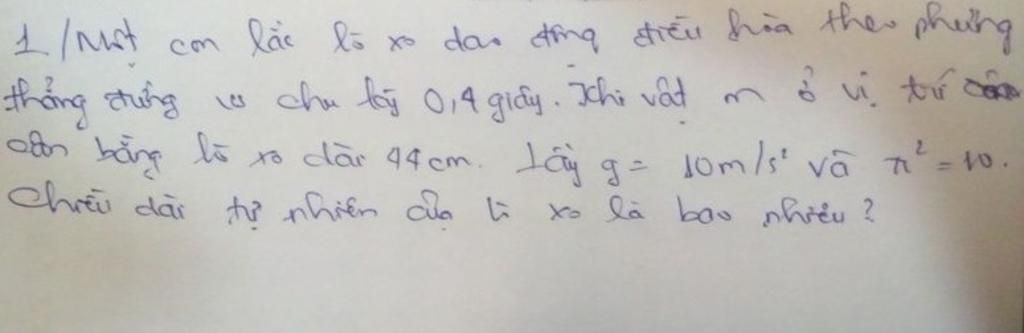 1/ Một con lắc lò xo dao động điều hòa theo phương
thẳng đứng với chu kỳ 0,4 giây. Khi vật m ở vị trí
cân bằng lò xo dài 44 cm. Lấy g = 10m/s² và π² = 10.
Chiều dài tự nhiên của lò xo là bao nhiêu?